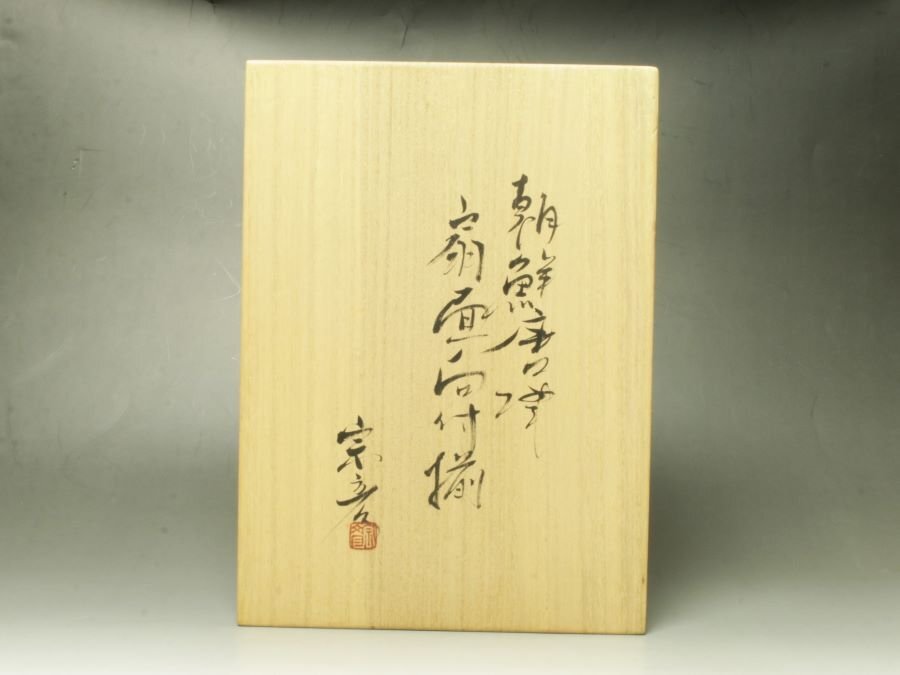 朝鮮唐津
扇面向付揃
宗彦